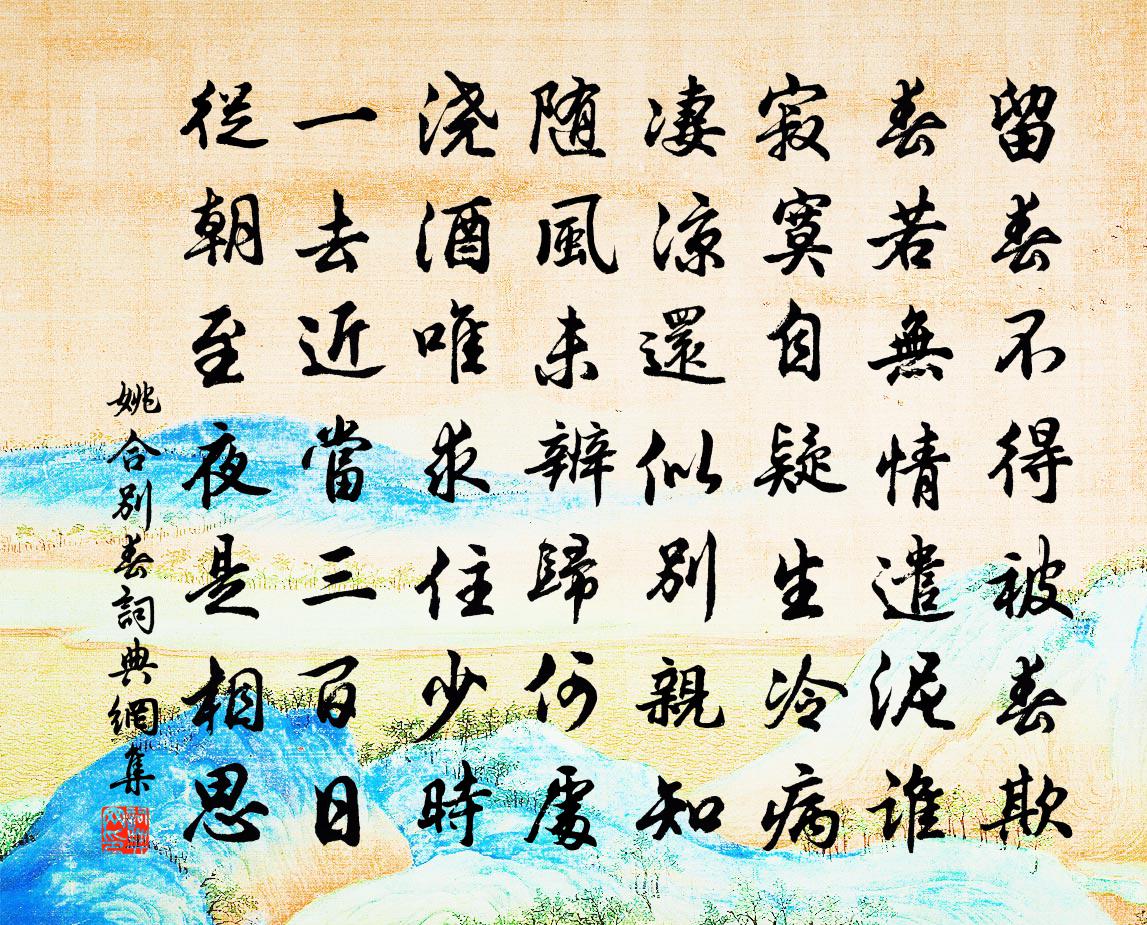 留春不得被春欺
春若無情遣泥誰
寂寞自疑生冷病
凄涼還似別親知
随風未辨歸何處
浇酒唯求住少時
一去近當三百日
從朝至夜是相思
姚合別春詞典網集